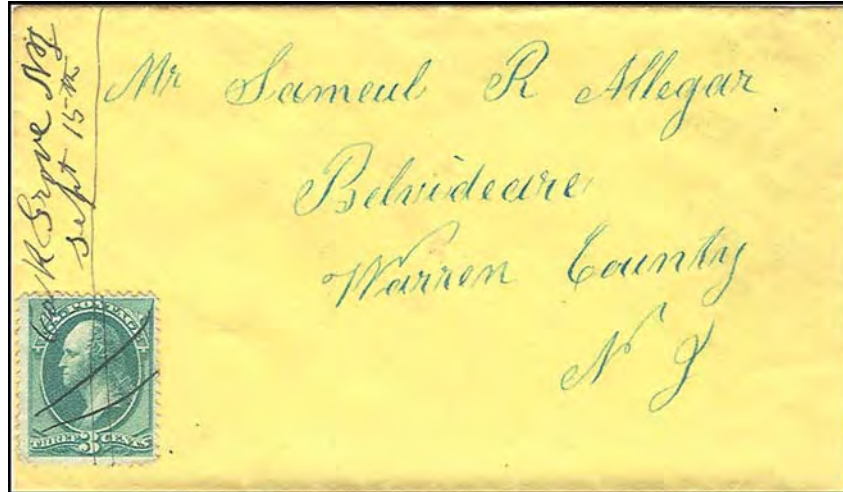 Grove NJ
Sept 15th
Mr Sameul R Allegar
Belvideare
Warren County
N J
U.S. POSTAGE
THREE 3 CENTS